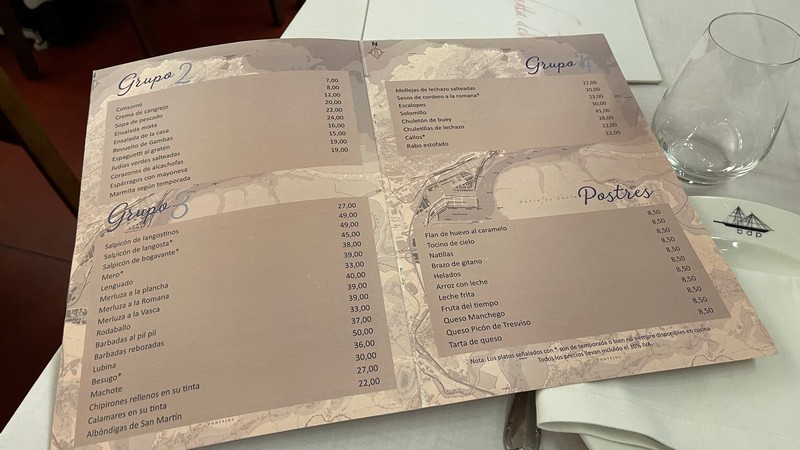 Grupo 2
Consomé 7,00
Crema de cangrejo 8,00
Sopa de pescado 12,00
Ensalada mixta 20,00
Ensalada de la casa 22,00
Revuelto de Gambas 24,00
Espaguetti al gratén 16,00
Judías verdes salteadas 15,00
Corazones de alcachofas 19,00
Espárragos con mayonesa 19,00
Marmita según temporada
Grupo 3
Salpicón de langostinos 27,00
Salpicón de langosta* 49,00
Salpicón de bogavante* 49,00
Mero* 45,00
Lenguado 38,00
Merluza a la plancha 39,00
Merluza a la Romana 33,00
Merluza a la Vasca 40,00
Rodaballo 39,00
Barbadas al pil pil 39,00
Barbadas rebozadas 33,00
Lubina 37,00
Besugo* 50,00
Machote 36,00
Chipirones rellenos en su tinta 30,00
Calamares en su tinta 27,00
Albóndigas de San Martín 22,00
N
Grupo 4
Mollejas de lechazo salteadas 27,00
Sesos de cordero a la romana* 20,00
Escalopes 23,00
Solomillo 30,00
Chuletón de buey 41,00
Chuletillas de lechazo 28,00
Callos* 22,00
Rabo estofado 22,00
Postres
Flan de huevo al caramelo 8,50
Tocino de cielo 8,50
Natillas 8,50
Brazo de gitano 8,50
Helados 8,50
Arroz con leche 8,50
Leche frita 8,50
Fruta del tiempo 8,50
Queso Manchego
Queso Picón de Tresviso
Tarta de queso
Nota: Los platos señalados con * son de temporada o bien no siempre disponibles en cocina
Todos los precios llevan incluido el 10% IVA
bdp